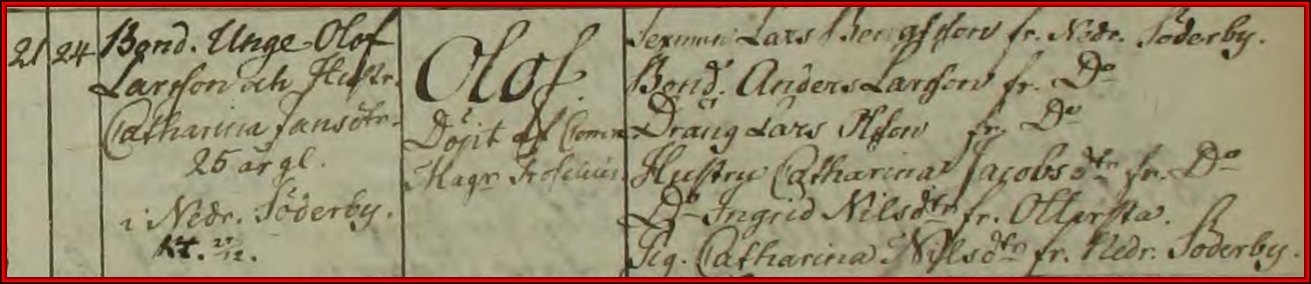 21 24 Bond. Unge Olof
Larsson och Hustr.
Catharina Jansdtr.
25 år gl.
i Nedr. Söderby.
Kt. 27/12.
Olof.
Döpt af Comm.
Magr.
Sexman Lars Bengtsson fr. Nedr. Söderby.
Bond. Anders Larsson fr. Do
Dräng Lars Olsson fr. Do
Hustru Catharina Jacobsdtr fr. Do
Do Ingrid Nilsdtr fr. Ottarsta.
Pig. Catharina Nilsdtr fr. Nedr. Söderby.